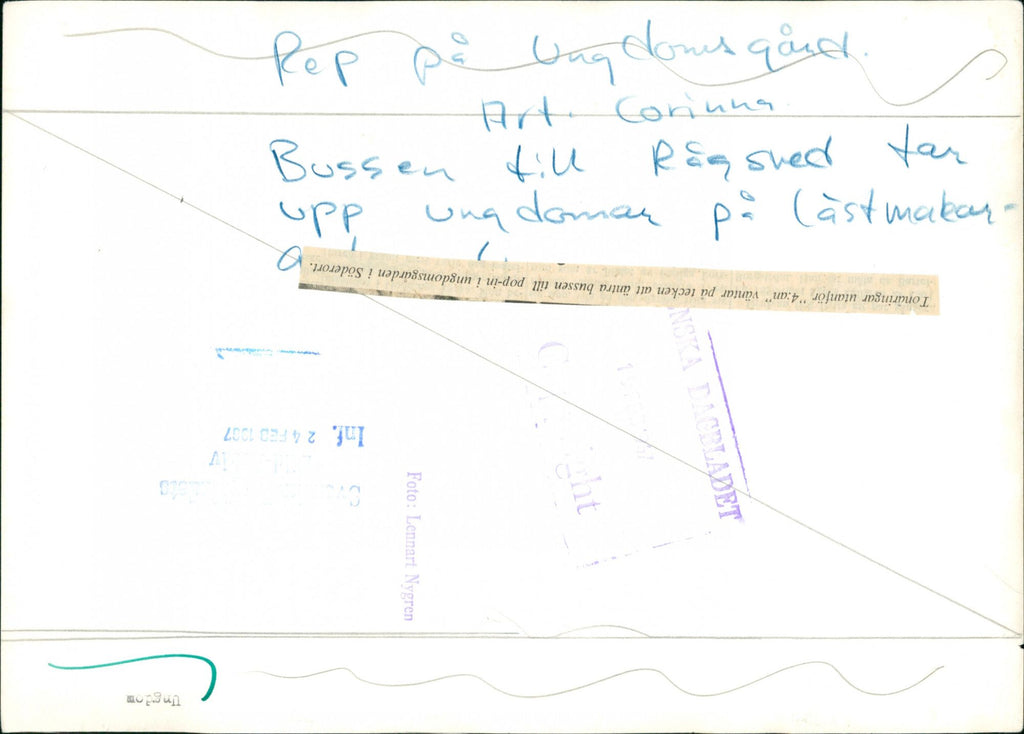 Rep på Ungdomsgård.
Art. Corinna
Bussen till Rågsved tar
upp ungdomar på Lästmakar-
Tonåringar utanför "4:an" väntar på tecken att äntra bussen till pop-in i ungdomsgården i Söderort.
NSKA DAGBLADET
Inf. 24 FEB 1967
Foto: Lennart Nygren
Ungdom